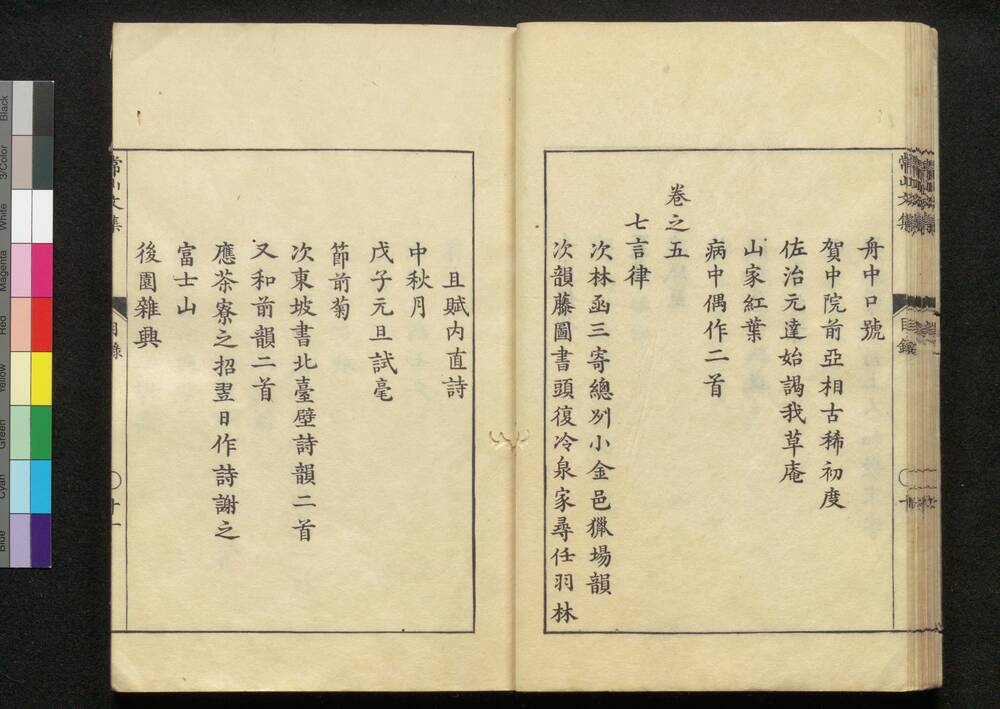 舟中口號
賀中院前亞相古稀初度
佐治元達始謁我草庵
山家紅葉
病中偶作二首
卷之五
七言律
次林函三寄總州小金邑獵場韻
次韻藤圖書頭復冷泉家尋任羽林
且賦內直詩
中秋月
戊子元旦試毫
節前菊
次東坡書北臺壁詩韻二首
又和前韻二首
應茶寮之招翌日作詩謝之
富士山
後園雜興
常山文集
目錄
十
常山文集
目錄
十一
Black
3/Color
White
Magenta
Red
Yellow
Green
Cyan
Blue